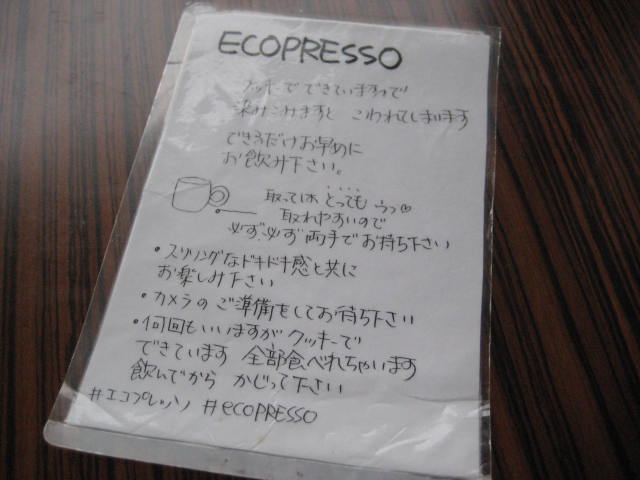 ECOPRESSO
クッキーでできていますので
染みこみますと こわれてしまいます
できるだけお早めに
お飲み下さい。
取っては とっても
取れやすいので
必ず、必ず 両手でお持ち下さい
・スリリングなドキドキ感と共に
お楽しみ下さい
・カメラの ご準備をしてお待ち下さい
・何回もいいますが クッキーで
できています 全部食べれちゃいます
飲んでから かじって下さい
#エコプレッソ #ecopresso